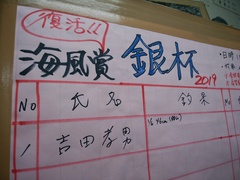 復活!!
海風賞 銀杯 2019
・日時
No 氏名 釣果 No
1 吉田孝男